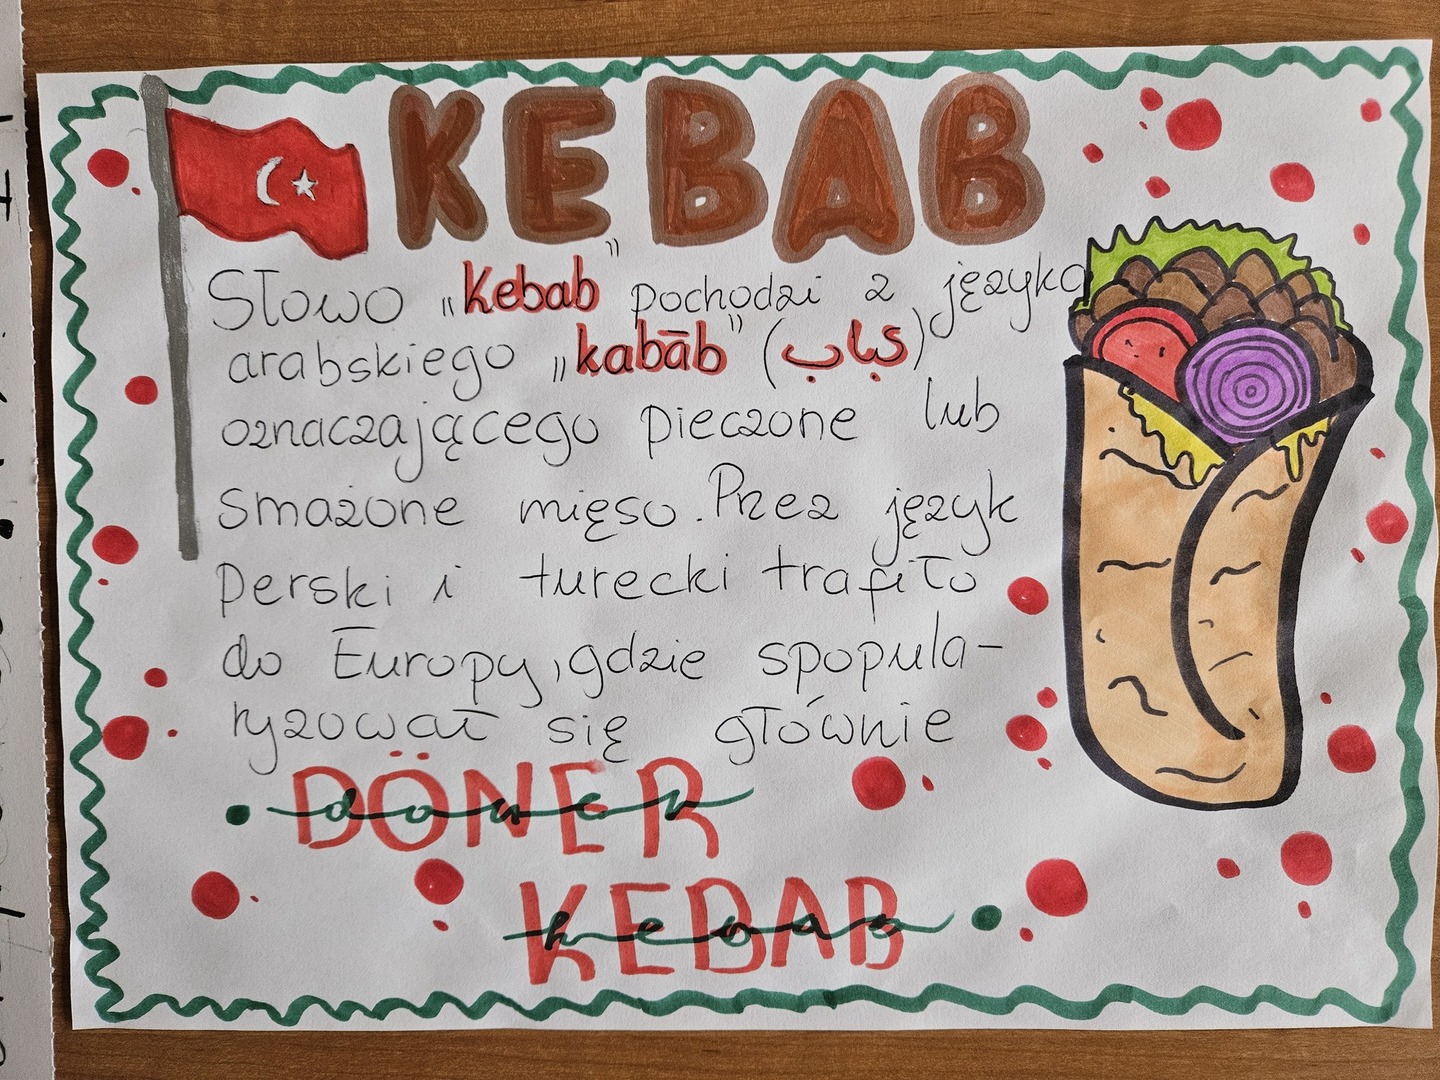 KEBAB
Słowo „Kebab” pochodzi z języka
arabskiego „kabāb” (كباب)
oznaczającego pieczone lub
smażone mięso. Przez język
Perski i turecki trafiło
do Europy, gdzie spopula-
ryzował się głównie
DÖNER
doner
KEBAB
kebab